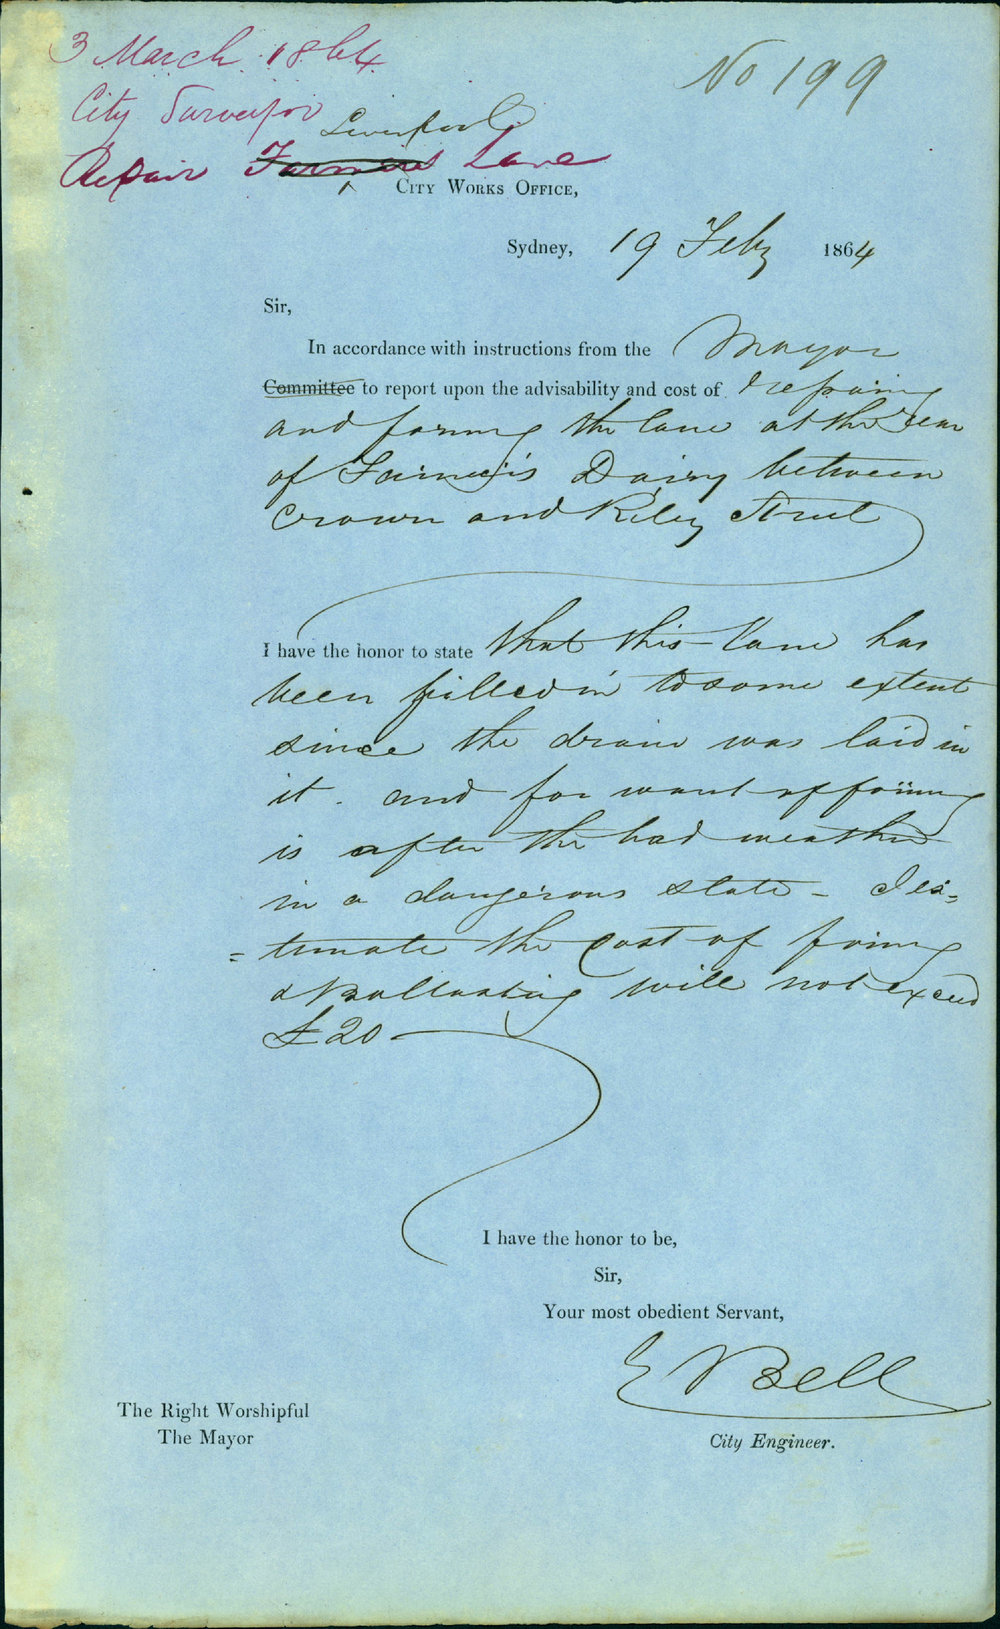 3 March 1864
No 199
City Surveyor
Liverpool
Repair Farmers Lane
CITY WORKS OFFICE,
Sydney, 19 Feby 1864
Sir,
In accordance with instructions from the Mayor
Committee to report upon the advisability and cost of repairing
and forming the lane at the rear
of Dairy between
Crown and Riley Street
I have the honor to state that this Lane has
been filled in to some extent
since the drain was laid in
it. and for want of forming
is after the bad weather
in a dangerous state - I es=
=timate the cost of forming
& Ballasting will not exceed
£20
I have the honor to be,
Sir,
Your most obedient Servant,
E Bell
The Right Worshipful
The Mayor
City Engineer.